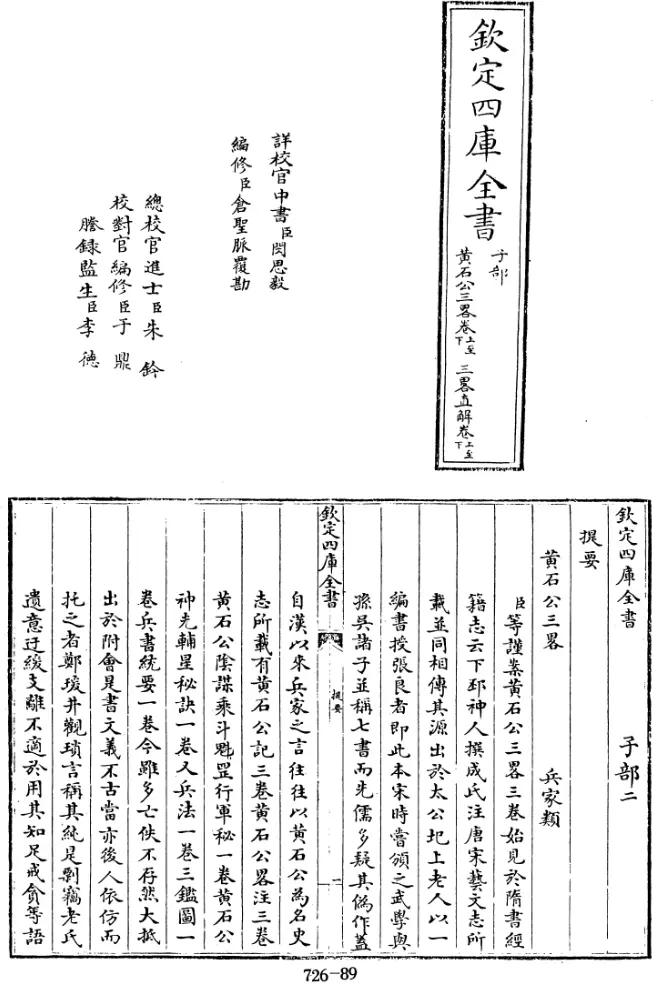 欽定四庫全書
子部
黄石公三畧卷上至下
三畧直解卷上至下
詳校官中書臣閔思毅
編修臣倉聖脈覆勘
總校官進士臣朱鈐
校對官編修臣于鼎
謄錄監生臣李德
欽定四庫全書 子部二
提要
黄石公三畧 兵家類
臣等謹案黄石公三畧三卷始見於隋書經
籍志云下邳神人撰成氏注唐宋藝文志所
載並同相傳其源出於太公圯上老人以一
編書授張良者即此本宋時嘗頒之武學與
孫吳諸子並稱七書而先儒多疑其偽作蓋
欽定四庫全書
提要
一
自漢以來兵家之言往往以黄石公為名史
志所載有黄石公記三卷黄石公畧注三卷
黄石公陰謀乘斗魁罡行軍秘一卷黄石公
神光輔星秘訣一卷又兵法一卷三鑑圖一
卷兵書統要一卷今雖多亡佚不存然大抵
出於附會是書文義不古當亦後人依仿而
托之者鄭瑗井觀瑣言稱其純是剽竊老氏
遺意迂緩支離不適於用其知足戒貪等語
726-89